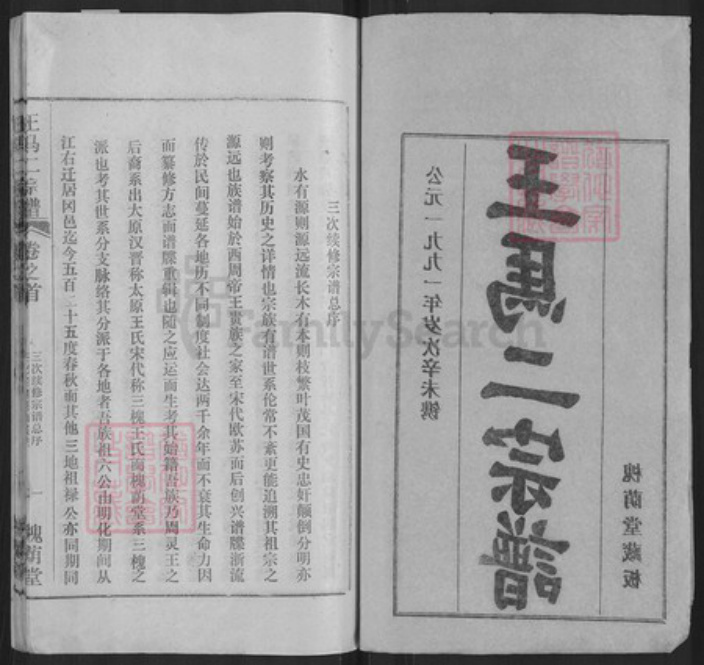 王馬二宗譜
公元一九九一年岁次辛未镌
槐荫堂藏板
三次续修宗谱总序
水有源则源远流长木有本则枝繁叶茂国有史忠奸颠倒分明亦
则考察其历史之详情也宗族有谱世系伦常不紊更能追溯其祖宗之
源远也族谱始於西周帝王贵族之家至宋代欧苏而后创兴谱牒浙流
传於民间蔓延各地历不同制度社会达两千余年而不衰其生命力因
而纂修方志而谱牒重辑也随之应运而生考其始籍吾族乃周灵王之
后裔系出大原汉晋称太原王氏宋代称三槐王氏而槐荫堂系三槐之
派也考其世系分支脉络其分派于各地者吾族祖六公由明化期间从
江右迁居冈邑迄今五百二十五度春秋而其他三地祖禄公亦同期同
王马二宗谱
卷之首
三次续修宗谱总序
一
槐荫堂
FamilySearch